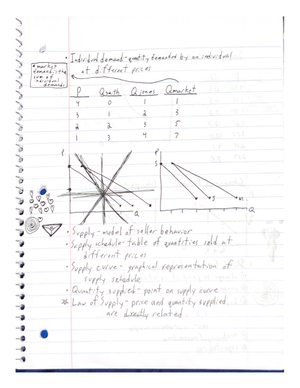 • Individual demand - quantity demanded by an individual
at different prices
* market
demand is the
sum of
individual
demands
P Qsmith Qjones Qmarket
4 0 1 1
3 1 2 3
2 2 3 5
1 3 4 7
P
Q
P
S
m
Q
• Supply - model of seller behavior
• Supply schedule - table of quantities sold at
different prices
• Supply curve - graphical representation of
supply schedule
• Quantity supplied - point on supply curve
* Law of Supply - price and quantity supplied
are directly related